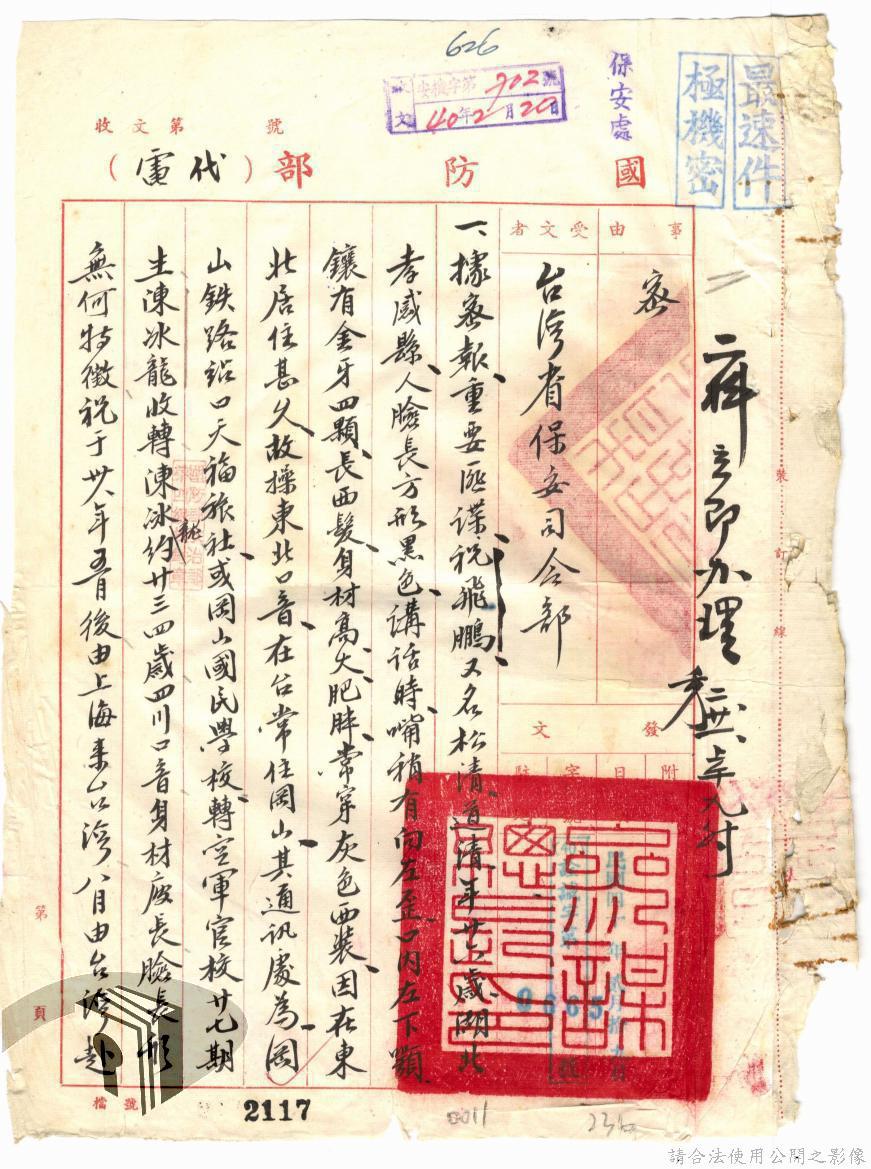 626
收文
安檢字第902號
40年2月20日
保安處
最速件
極機密
收文第 號
國防部(代電)
二科立即办理
事由
受文者
密
台湾省保安司令部
發文
附
日
字
駐
一、據密報重要匪諜祝飛鵬又名松清、道清、年廿六歲湖北
孝感縣人臉長方形黑色講話時嘴稍有向左歪口內左下顎
鑲有金牙四顆、長西髮、身材高大、肥胖、常穿灰色西裝、因在東
北居住甚久、故操東北口音、在台常住岡山、其通訊處為岡
山鉄路站口天福旅社、或岡山國民學校、轉空軍官校廿七期
生涷冰龍收轉涷冰龍約廿三四歲四川口音身材瘦長臉長形
無何特徵祝于卅八年五月後由上海来台湾八月由台湾赴
0665
裝訂線
第 頁
檔號
2117
0011
請合法使用公開之影像